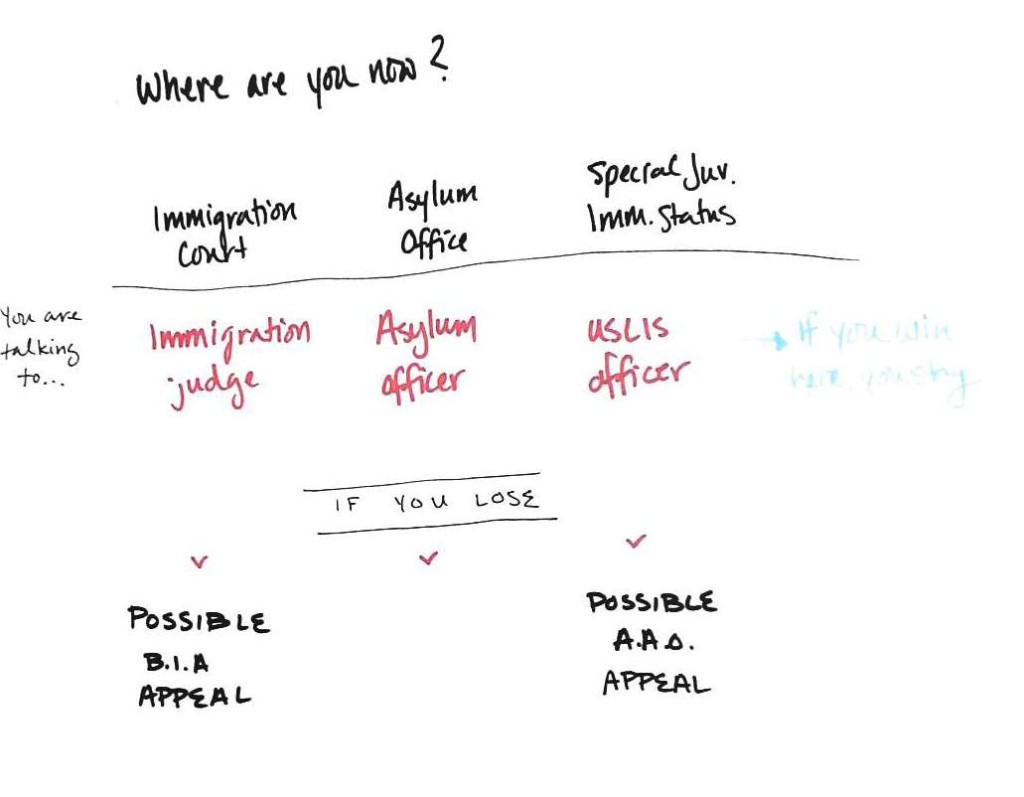 Where are you now?
Immigration
Court
Asylum
Office
Special Juv.
Imm. Status
You are
talking
to...
Immigration
judge
Asylum
officer
USCIS
officer
→ If you win
here, you stay
IF YOU LOSE
POSSIBLE
B.I.A
APPEAL
POSSIBLE
A.A.O.
APPEAL